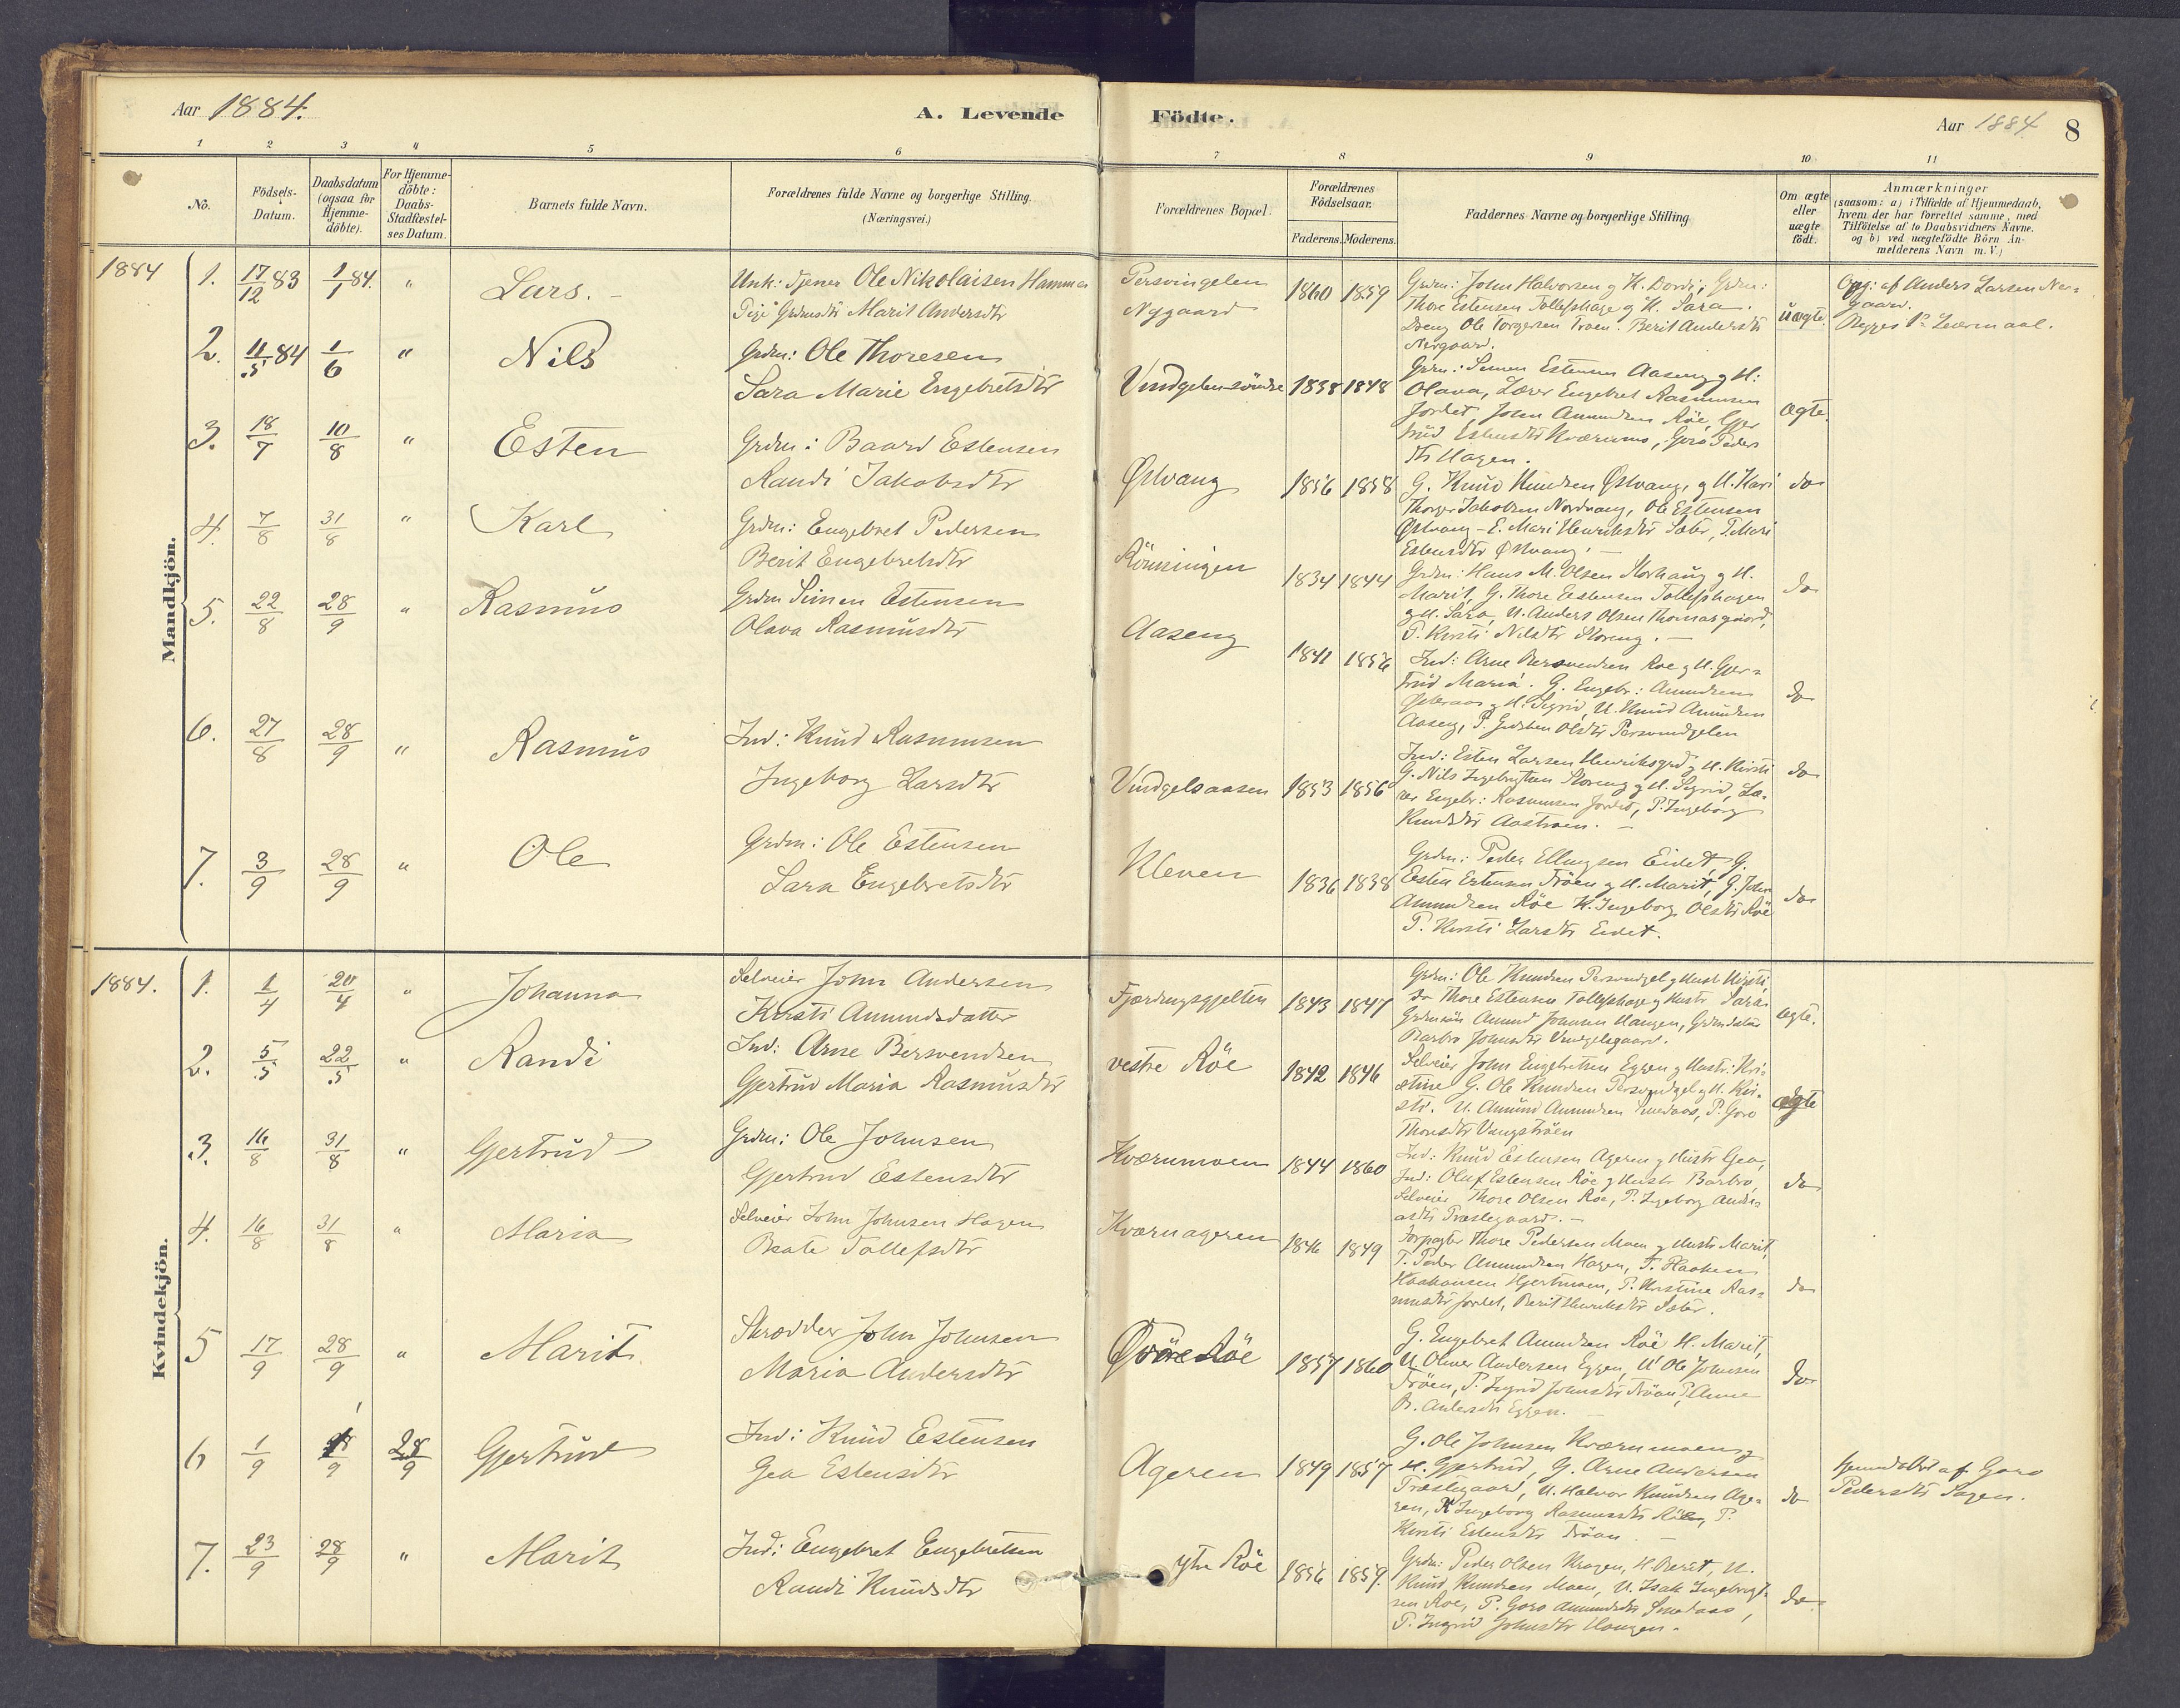 Aar 1884.
A. Levende Födte.
Aar 1884 8
1 2 3 4 5 6 7 8 9 10 11
No.
Födsels-Datum.
Daabsdatum (ogsaa for Hjemme-döbte).
For Hjemme-döbte: Daabs-Stadfæstel-ses Datum.
Barnets fulde Navn.
Forældrenes fulde Navne og borgerlige Stilling.
(Næringsvei.)
Forældrenes Bopæl.
Forældrenes Födselsaar.
Faderens. Moderens.
Faddernes Navne og borgerlige Stilling
Om ægte eller uægte födt.
Anmærkninger
(saasom: a) i Tilfælde af Hjemmedaab,
hvem der har forrettet samme, med
Tilföielse af to Daabsvidners Navne.
og b) ved uægtefödte Börn An-
melderens Navn m. V.)
Mandkjön.
1884 1. 17/12 83 1/1 84. " Lars. -
Unk: Tjener Ole Nikolaisen Hammer
Pige Grdmsdtr Marit Andersdtr
Persvingelen
Nygaard
1860 1859
Grdm: John Halvorsen og H. Dordi, Grdm:
Thore Estensen Tollefshage og H. Sara.
Dreng Ole Torgersen Troen. Berit Andersdtr
Nergaard.
uægte.
Opg: af Anders Larsen Ner-
gaard.
2. 11/5 84 1/6 " Nils
Grdm: Ole Thoresen
Sara Marie Engebretsdtr
Vindgelen söndre 1838 1848
Grdm: Simen Estensen Aaseng og H:
Olava, Lærer Engebret Rasmussen
Jordet, John Amundsen Röe, Gjer
trud Estensdtr Kværnmo, Goro Peders
dtr Hagen.
ægte.
3. 18/7 10/8 " Esten
Grdm: Baard Estensen
Randi Jakobsdtr
Østvang 1856 1858
G. Knud Knudsen Østvang, og H. Kari
Thorger Jakobsen Nordvang, Ole Estensen
Østvang - E. Mari Henriksdtr Sæter, P. Mari
Estensdtr Østvang. -
do
4. 7/8 31/8 " Karl
Grdm: Engebret Pedersen
Berit Engebretsdtr
Rönningen 1834 1844
Grdm: Hans M. Olsen Storhaug og H.
Marit, G. Thore Estensen Tollefshagen
og H. Sara, U. Anders Olsen Thomasgaard,
P. Kirsti Nilsdtr Storeng. -
do
5. 22/8 28/9 " Rasmus
Grdm Simen Estensen
Olava Rasmusdtr
Aaseng 1841 1856
Ind: Arne Bersvendsen Roe og H. Gjer-
trud Maria. G. Engebr: Amundsen
og H. Sigrid, U. Knud Amundsen
Aaseng, P. Olsdtr Persvendgelen
do
6. 27/8 28/9 " Rasmus
Ind: Knud Rasmussen
Ingeborg Larsdtr
Vindgelsaasen 1853 1856
Ind: Esten Larsen Henriksgrd og H. Kirsti
G. Nils Ingebrigtsen Storeng og H. Sigrid, Læ-
rer Engebr: Rasmussen Jordet, P. Ingeborg
Knudsdtr Aastroen. -
do
7. 3/9 28/9 " Ole
Grdm: Ole Estensen
Sara Engebretsdtr
Kleven 1836 1838
Grdm: Peder Ellingsen Eidet, G.
Esten Estensen Tröen og H. Marit, G. John
Amundsen Röe H. Ingeborg Olsdtr Röe
P. Kirsti Larsdtr Eidet.
do
Kvindekjön.
1884. 1. 1/4 20/4 " Johanna
Selveier John Andersen
Kirsti Amundsdatter
Fjærdingsgjelten 1843 1847
Grdm: Ole Knudsen Persvendgel og Hustr Kirsti,
do Thore Estensen Tollefshage og Hustr Sara
Grdmsön Amund Johnsen Haugen, Grdmdatter
Barbro Johnsdtr Vingelsgaard.
ægte.
2. 5/5 22/5 " Randi
Ind: Arne Bersvendsen
Gjertrud Maria Rasmusdtr
vestre Röe 1842 1846
Selveier John Engebretsen Eggen og Hustr: Kri-
stine G. Ole Knudsen Persvendgel og H. Kir-
sti. U. Amund Amundsen Smedaas, P. Goro
Thoresdtr Vangströen
ægte
3. 16/8 31/8 " Gjertrud
Grdm: Ole Johnsen
Gjertrud Estensdtr
Kværnmoen 1844 1860
Ind: Knud Estensen Ageren og Hustr Gea,
Ind: Oluf Estensen Röe og Hustr Barbro,
Selveier Thore Olsen Roe, P. Ingeborg Andre-
asdtr Præstegaard. -
do
4. 16/8 31/8 " Maria
Selveier John Johnsen Hagen
Beate Tollefsdtr
Kværnageren 1846 1849
Forpagter Thore Pedersen Moen og Hustr Marit,
T. Peder Amundsen Hagen, T. Haaken
Haakonsen Hjertmoen, P. Kristine Ras-
musdtr Jordet, Berit Henriksdtr Sæter.
do
5 17/9 28/9 " Marit.
Skrædder John Johnsen
Maria Andersdtr
Øvre Röe 1857 1860
G. Engebret Amundsen Röe H. Marit,
U. Oliver Andersen Eggen, U. Ole Johnsen
Tröen, P. Ingrid Johnsdtr Tröen, P. Anne
B. Andersdtr Eggen. -
do
6 1/9 28/9 Gjertrud
Ind: Knud Estensen
Gea Estensdtr
Ageren 1849 1857
G. Ole Johnsen Kværnmoen og
H. Gjertrud, G. Arne Andersen
Præstegaard, U. Halvor Knudsen Age-
ren, P. Ingeborg Rasmusdtr P.
Kirsti Estensdtr Tröen -
do
hjemmedöbt af Goro
Pedersdtr Hagen.
7. 23/9 28/9 " Marit
Ind: Engebret Engebretsen
Randi Knudsdtr
ytre Röe 1856 1859.
Grdm: Peder Olsen Kragen, H. Berit, U.
Knud Knudsen Moen, U. Isak Ingebrigt-
sen Roe, P. Goro Amundsdtr Smedaas,
P. Ingrid Johnsdtr Haugen.
do